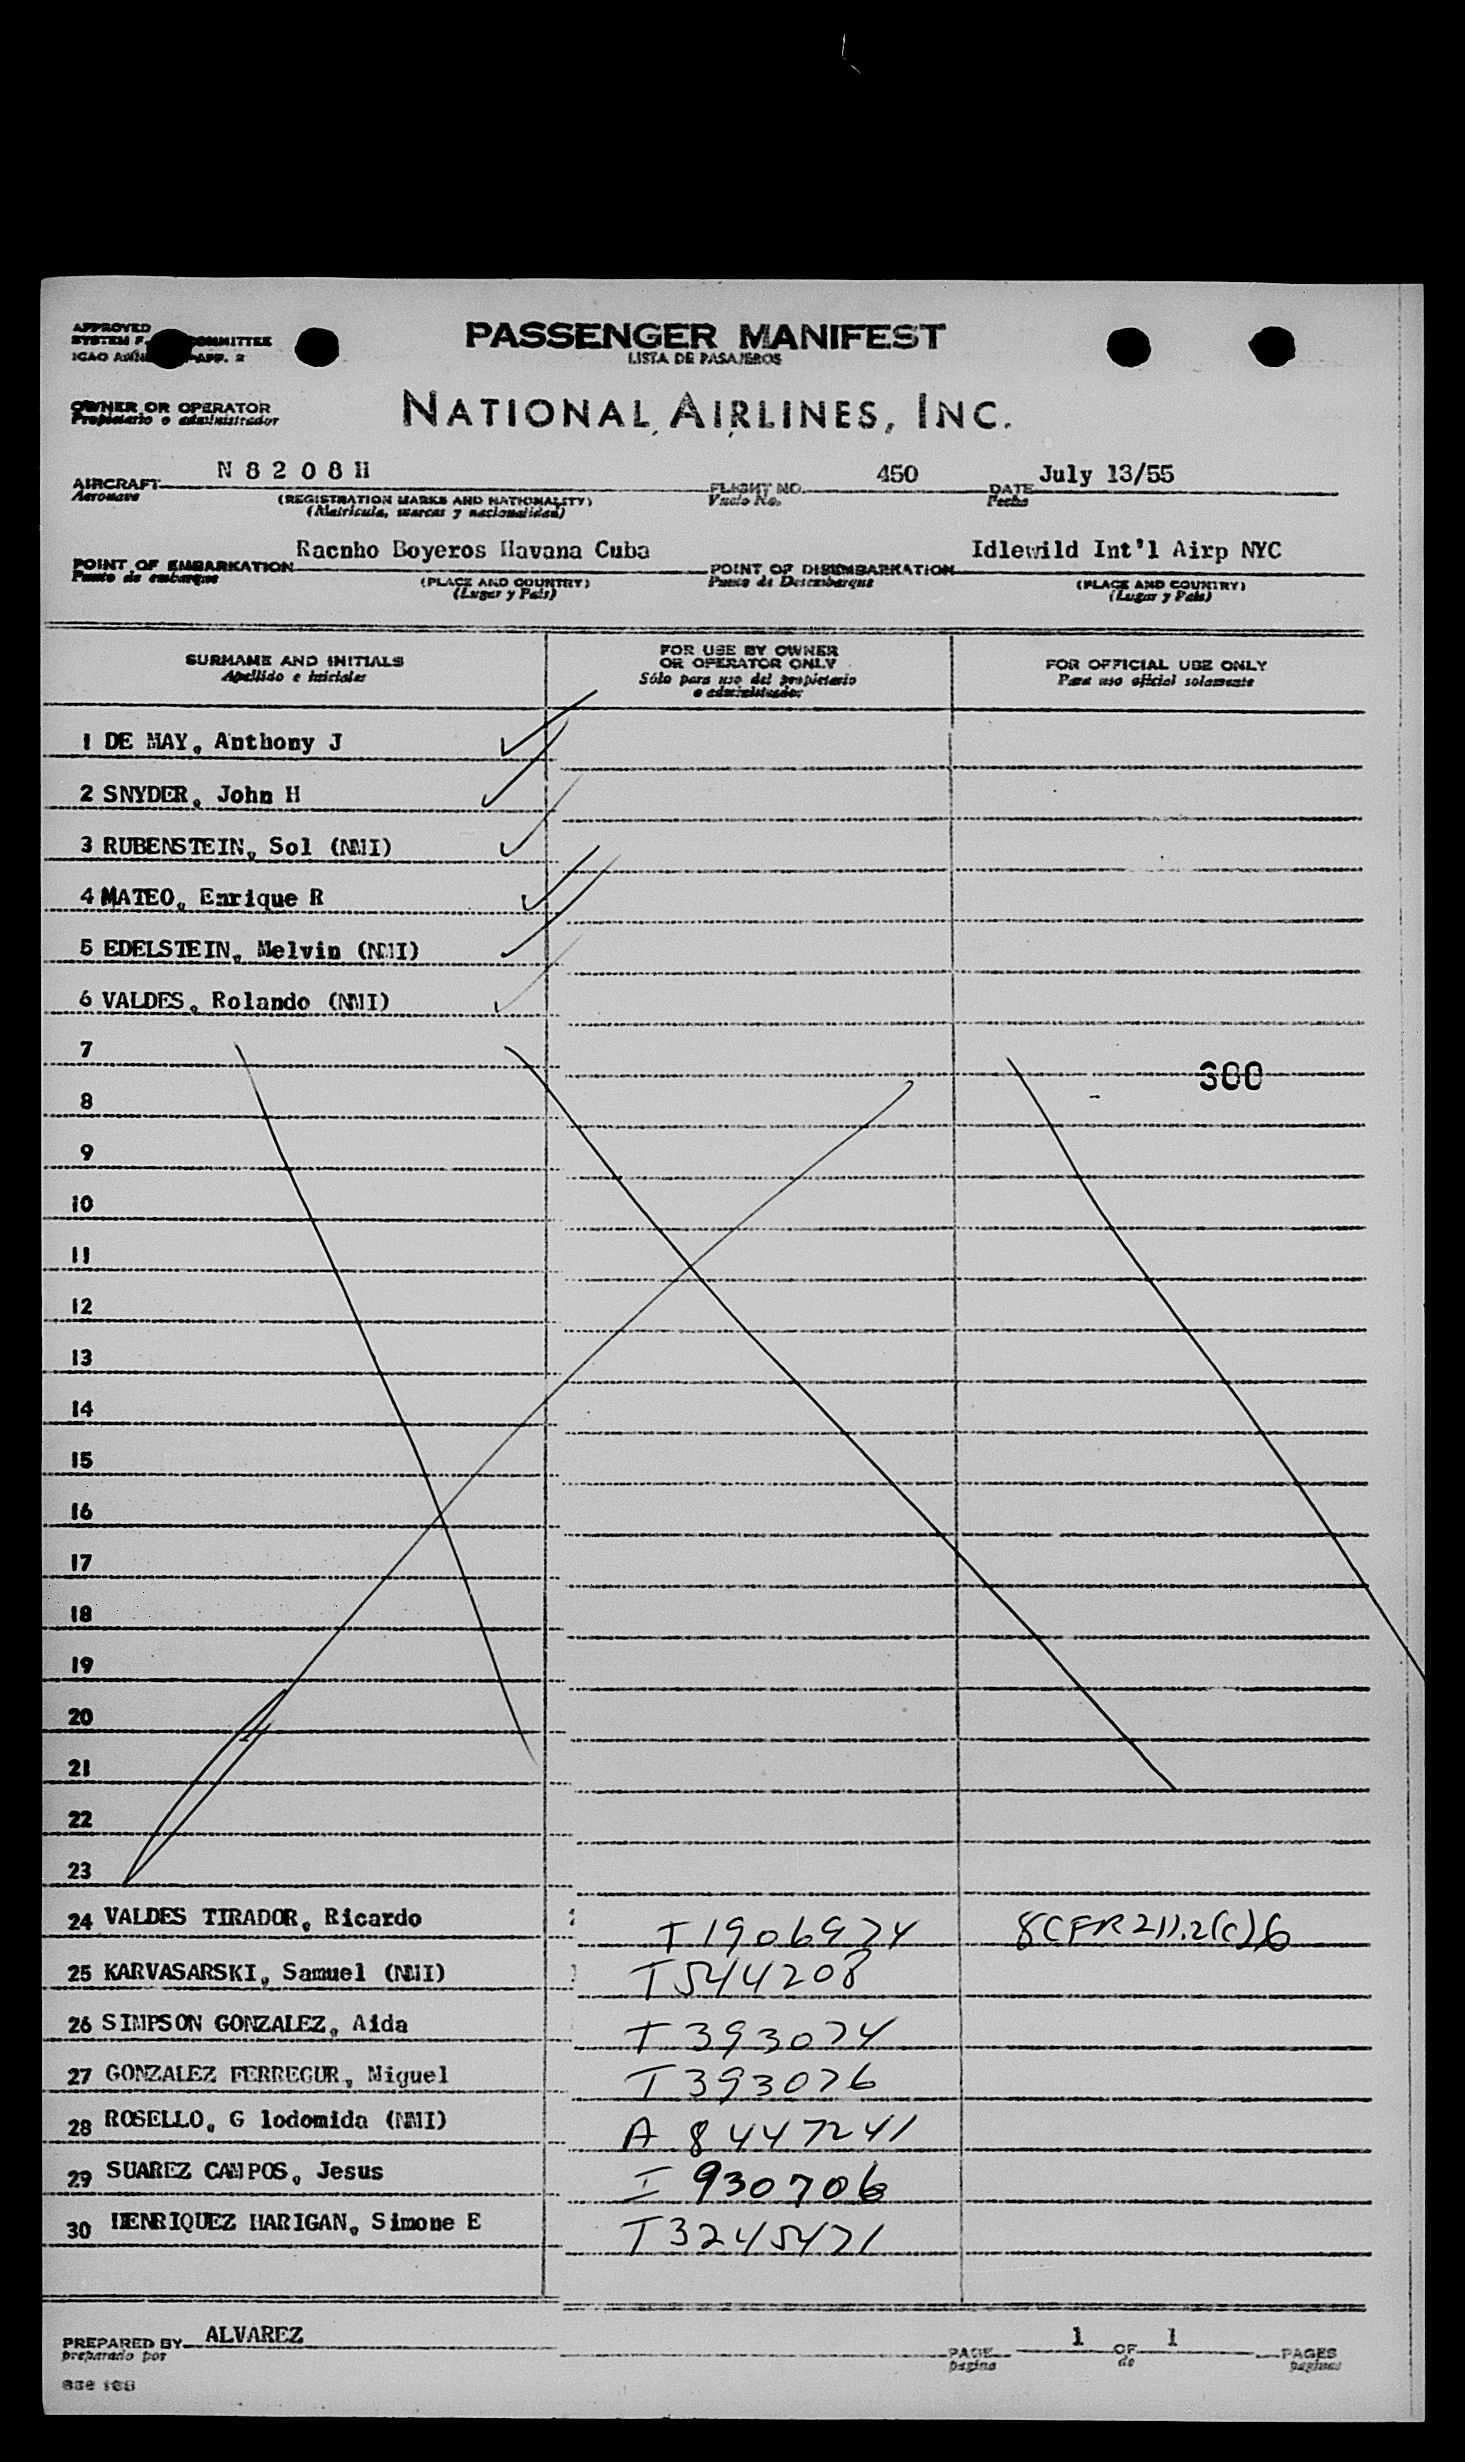 PASSENGER MANIFEST
LISTA DE PASAJEROS
APPROVED
SYSTEM F. COMMITTEE
ICAO APP. 2
OWNER OR OPERATOR
Propietario o administrador
NATIONAL AIRLINES, INC.
AIRCRAFT N 8 2 0 8 H FLIGHT NO. 450 DATE July 13/55
Aeronave (REGISTRATION MARKS AND NATIONALITY) Vuelo No. Fecha
(Matricula, marcas y nacionalidad)
POINT OF EMBARKATION Racnho Boyeros Havana Cuba POINT OF DISEMBARKATION Idlewild Int'l Airp NYC
Punto de embarque (PLACE AND COUNTRY) Punto de Desembarque (PLACE AND COUNTRY)
(Lugar y Pais) (Lugar y Pais)
SURNAME AND INITIALS
Apellido e iniciales
FOR USE BY OWNER
OR OPERATOR ONLY
Sólo para uso del propietario
o administrador
FOR OFFICIAL USE ONLY
Para uso oficial solamente
1 DE MAY, Anthony J
2 SNYDER, John H
3 RUBENSTEIN, Sol (NMI)
4 MATEO, Enrique R
5 EDELSTEIN, Melvin (NMI)
6 VALDES, Rolando (NMI)
7
300
8
9
10
11
12
13
14
15
16
17
18
19
20
21
22
23
24 VALDES TIRADOR, Ricardo T1906974 8CFR211.2(c)6
25 KARVASARSKI, Samuel (NMI) T544208
26 SIMPSON GONZALEZ, Aida T393074
27 GONZALEZ FERREGUR, Miguel T393076
28 ROSELLO, G lodomida (NMI) A 8447241
29 SUAREZ CAMPOS, Jesus I 930706
30 HENRIQUEZ HARIGAN, Simone E T3245471
PREPARED BY ALVAREZ PAGE 1 OF 1 PAGES
preparado por pagina de paginas